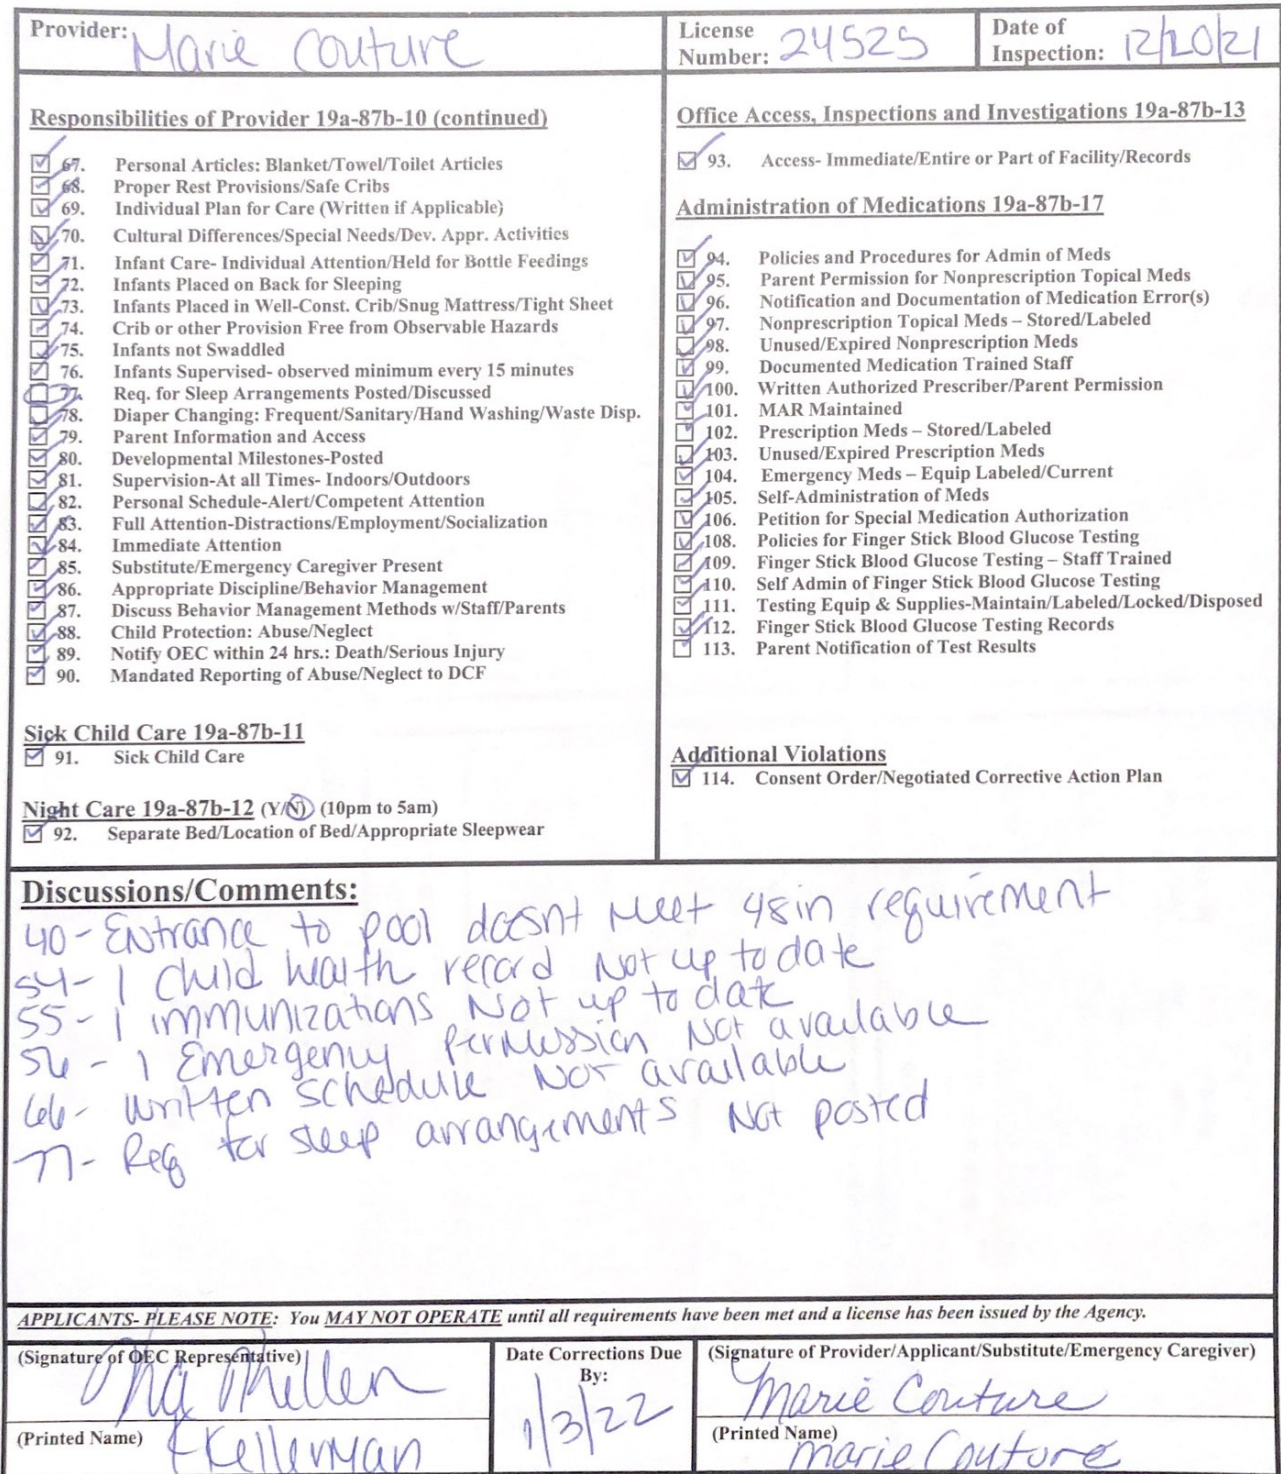 Provider: Marie Couture
License Number: 24525
Date of Inspection: 12/20/21
Responsibilities of Provider 19a-87b-10 (continued)
67. Personal Articles: Blanket/Towel/Toilet Articles
68. Proper Rest Provisions/Safe Cribs
69. Individual Plan for Care (Written if Applicable)
70. Cultural Differences/Special Needs/Dev. Appr. Activities
71. Infant Care- Individual Attention/Held for Bottle Feedings
72. Infants Placed on Back for Sleeping
73. Infants Placed in Well-Const. Crib/Snug Mattress/Tight Sheet
74. Crib or other Provision Free from Observable Hazards
75. Infants not Swaddled
76. Infants Supervised- observed minimum every 15 minutes
77. Req. for Sleep Arrangements Posted/Discussed
78. Diaper Changing: Frequent/Sanitary/Hand Washing/Waste Disp.
79. Parent Information and Access
80. Developmental Milestones-Posted
81. Supervision-At all Times- Indoors/Outdoors
82. Personal Schedule-Alert/Competent Attention
83. Full Attention-Distractions/Employment/Socialization
84. Immediate Attention
85. Substitute/Emergency Caregiver Present
86. Appropriate Discipline/Behavior Management
87. Discuss Behavior Management Methods w/Staff/Parents
88. Child Protection: Abuse/Neglect
89. Notify OEC within 24 hrs.: Death/Serious Injury
90. Mandated Reporting of Abuse/Neglect to DCF
Sick Child Care 19a-87b-11
91. Sick Child Care
Night Care 19a-87b-12 (Y/N) (10pm to 5am)
92. Separate Bed/Location of Bed/Appropriate Sleepwear
Office Access, Inspections and Investigations 19a-87b-13
93. Access- Immediate/Entire or Part of Facility/Records
Administration of Medications 19a-87b-17
94. Policies and Procedures for Admin of Meds
95. Parent Permission for Nonprescription Topical Meds
96. Notification and Documentation of Medication Error(s)
97. Nonprescription Topical Meds – Stored/Labeled
98. Unused/Expired Nonprescription Meds
99. Documented Medication Trained Staff
100. Written Authorized Prescriber/Parent Permission
101. MAR Maintained
102. Prescription Meds – Stored/Labeled
103. Unused/Expired Prescription Meds
104. Emergency Meds – Equip Labeled/Current
105. Self-Administration of Meds
106. Petition for Special Medication Authorization
108. Policies for Finger Stick Blood Glucose Testing
109. Finger Stick Blood Glucose Testing – Staff Trained
110. Self Admin of Finger Stick Blood Glucose Testing
111. Testing Equip & Supplies-Maintain/Labeled/Locked/Disposed
112. Finger Stick Blood Glucose Testing Records
113. Parent Notification of Test Results
Additional Violations
114. Consent Order/Negotiated Corrective Action Plan
Discussions/Comments:
40- Entrance to pool doesnt meet 48in requirement
54- 1 child health record Not up to date
55- 1 immunizations Not up to date
56- 1 Emergency Permission Not available
66- written schedule Not available
77- Req for sleep arrangements Not posted
APPLICANTS- PLEASE NOTE: You MAY NOT OPERATE until all requirements have been met and a license has been issued by the Agency.
(Signature of OEC Representative)
(Printed Name) Kellerman
Date Corrections Due By:
1/3/22
(Signature of Provider/Applicant/Substitute/Emergency Caregiver)
Marie Couture
(Printed Name)
Marie Couture